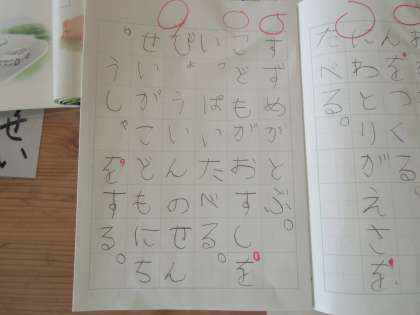 をつくる。
にわとりがえさを
たべる。
すずめがとぶ。
こどもがおすしを
いっぱいたべる。
びょういんのせん
せいがこどもにち
ゅうしゃをする。
せい